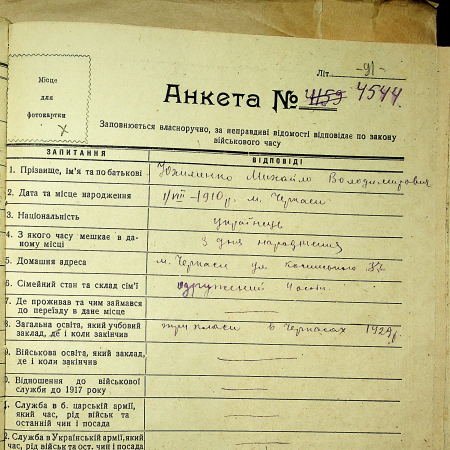 Літ. -91-
Місце
для
фотокартки
Анкета № 4544.
Заповнюється власноручно, за неправдиві відомості відповідає по закону
військового часу
ЗАПИТАННЯ ВІДПОВІДІ
1. Прізвище, ім'я та по батькові Михайло Володимирович
2. Дата та місце народження 1/VIII-1910 р. м. Черкаси
3. Національність українець
4. З якого часу мешкає в даному місці З дня народження
5. Домашня адреса м. Черкаси ул.
6. Сімейний стан та склад сім'ї одружений
7. Де проживав та чим займався
до переїзду в дане місце
8. Загальна освіта, який учбовий
заклад, де і коли закінчив класи в Черкасах 1929р.
9. Військова освіта, який заклад,
де і коли закінчив
0. Відношення до військової
служби до 1917 року
1. Служба в б. царській армії,
який час, рід військ та
останній чин і посада
2. Служба в Українській армії, який
час, рід військ та ост. чин і посада